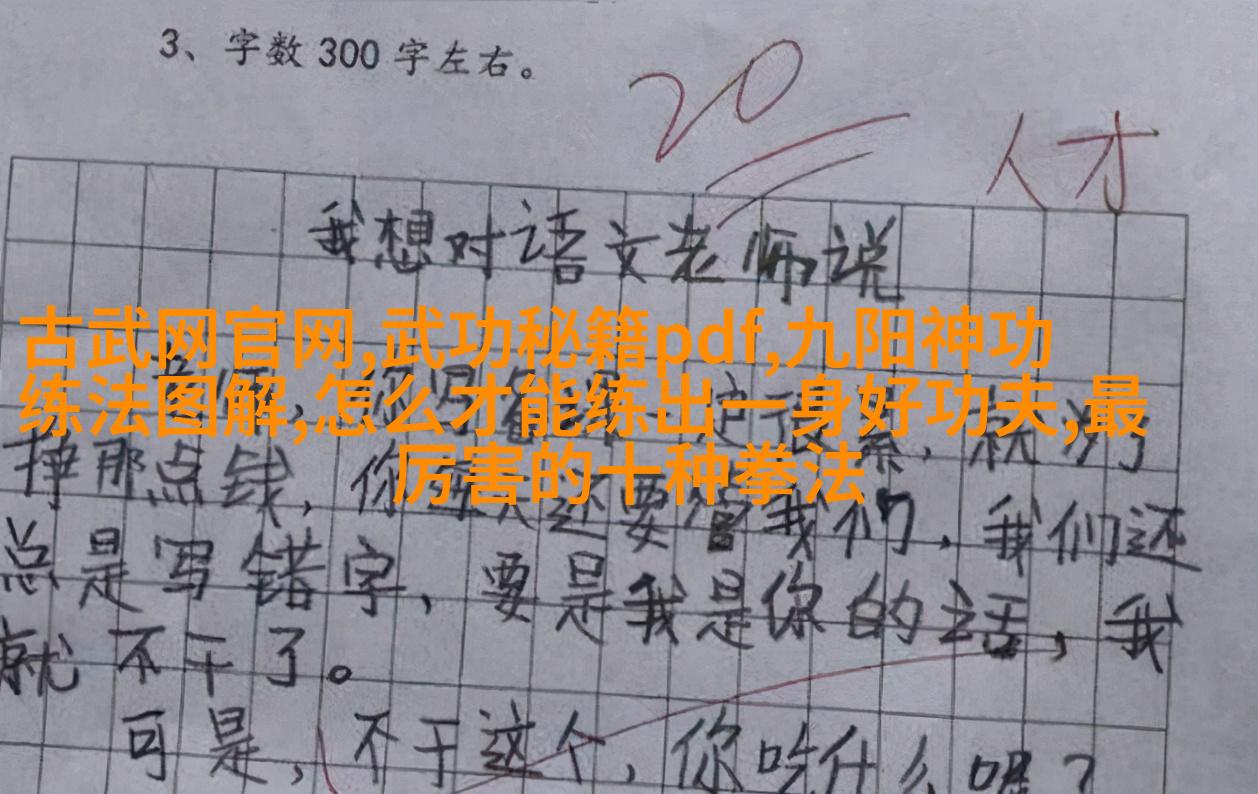 3、字数 300 字左右。
20
人才
我想对语文老师说
古武网官网,武功秘籍pdf,九阳神功
练法图解,怎么才能练出一身好功夫,最
厉害的十种拳法
挣那点钱，你 还要管我们，我们还
总是写错字，要是我是你的话，我
就不干了。
可是，不干这个，你吃什么呢？